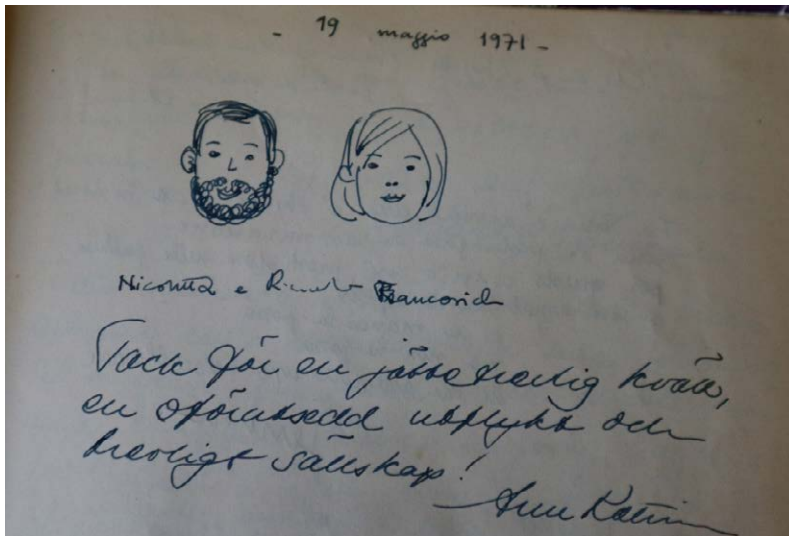 - 19 maggio 1971 -
Nicoletta e Riccardo Francovich
Tack för en jättetrevlig kväll,
en oförutsedd utflykt och
trevligt sällskap!
Ann Katrin